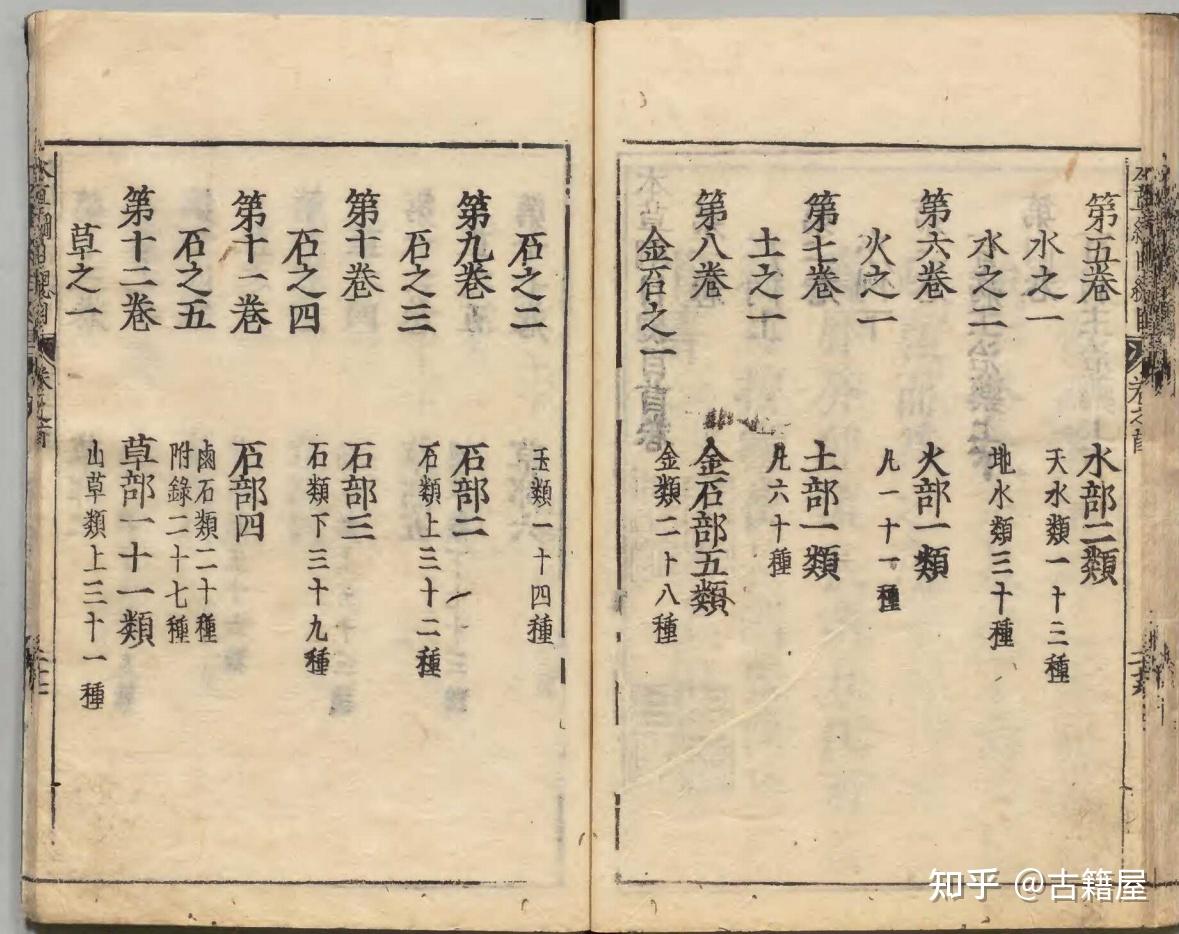 第五卷 水部二類
水之一 天水類一十三種
水之二 地水類三十種
第六卷 火部一類
火之一 凡一十一種
第七卷 土部一類
土之一 凡六十種
第八卷 金石部五類
金石之一 金類二十八種
石之二 玉類一十四種
第九卷 石部二
石之三 石類上三十二種
第十卷 石部三
石之四 石類下三十九種
第十一卷 石部四
石之五 鹵石類二十種
附錄二十七種
第十二卷 草部一十一類
草之一 山草類上三十一種
知乎 @古籍屋